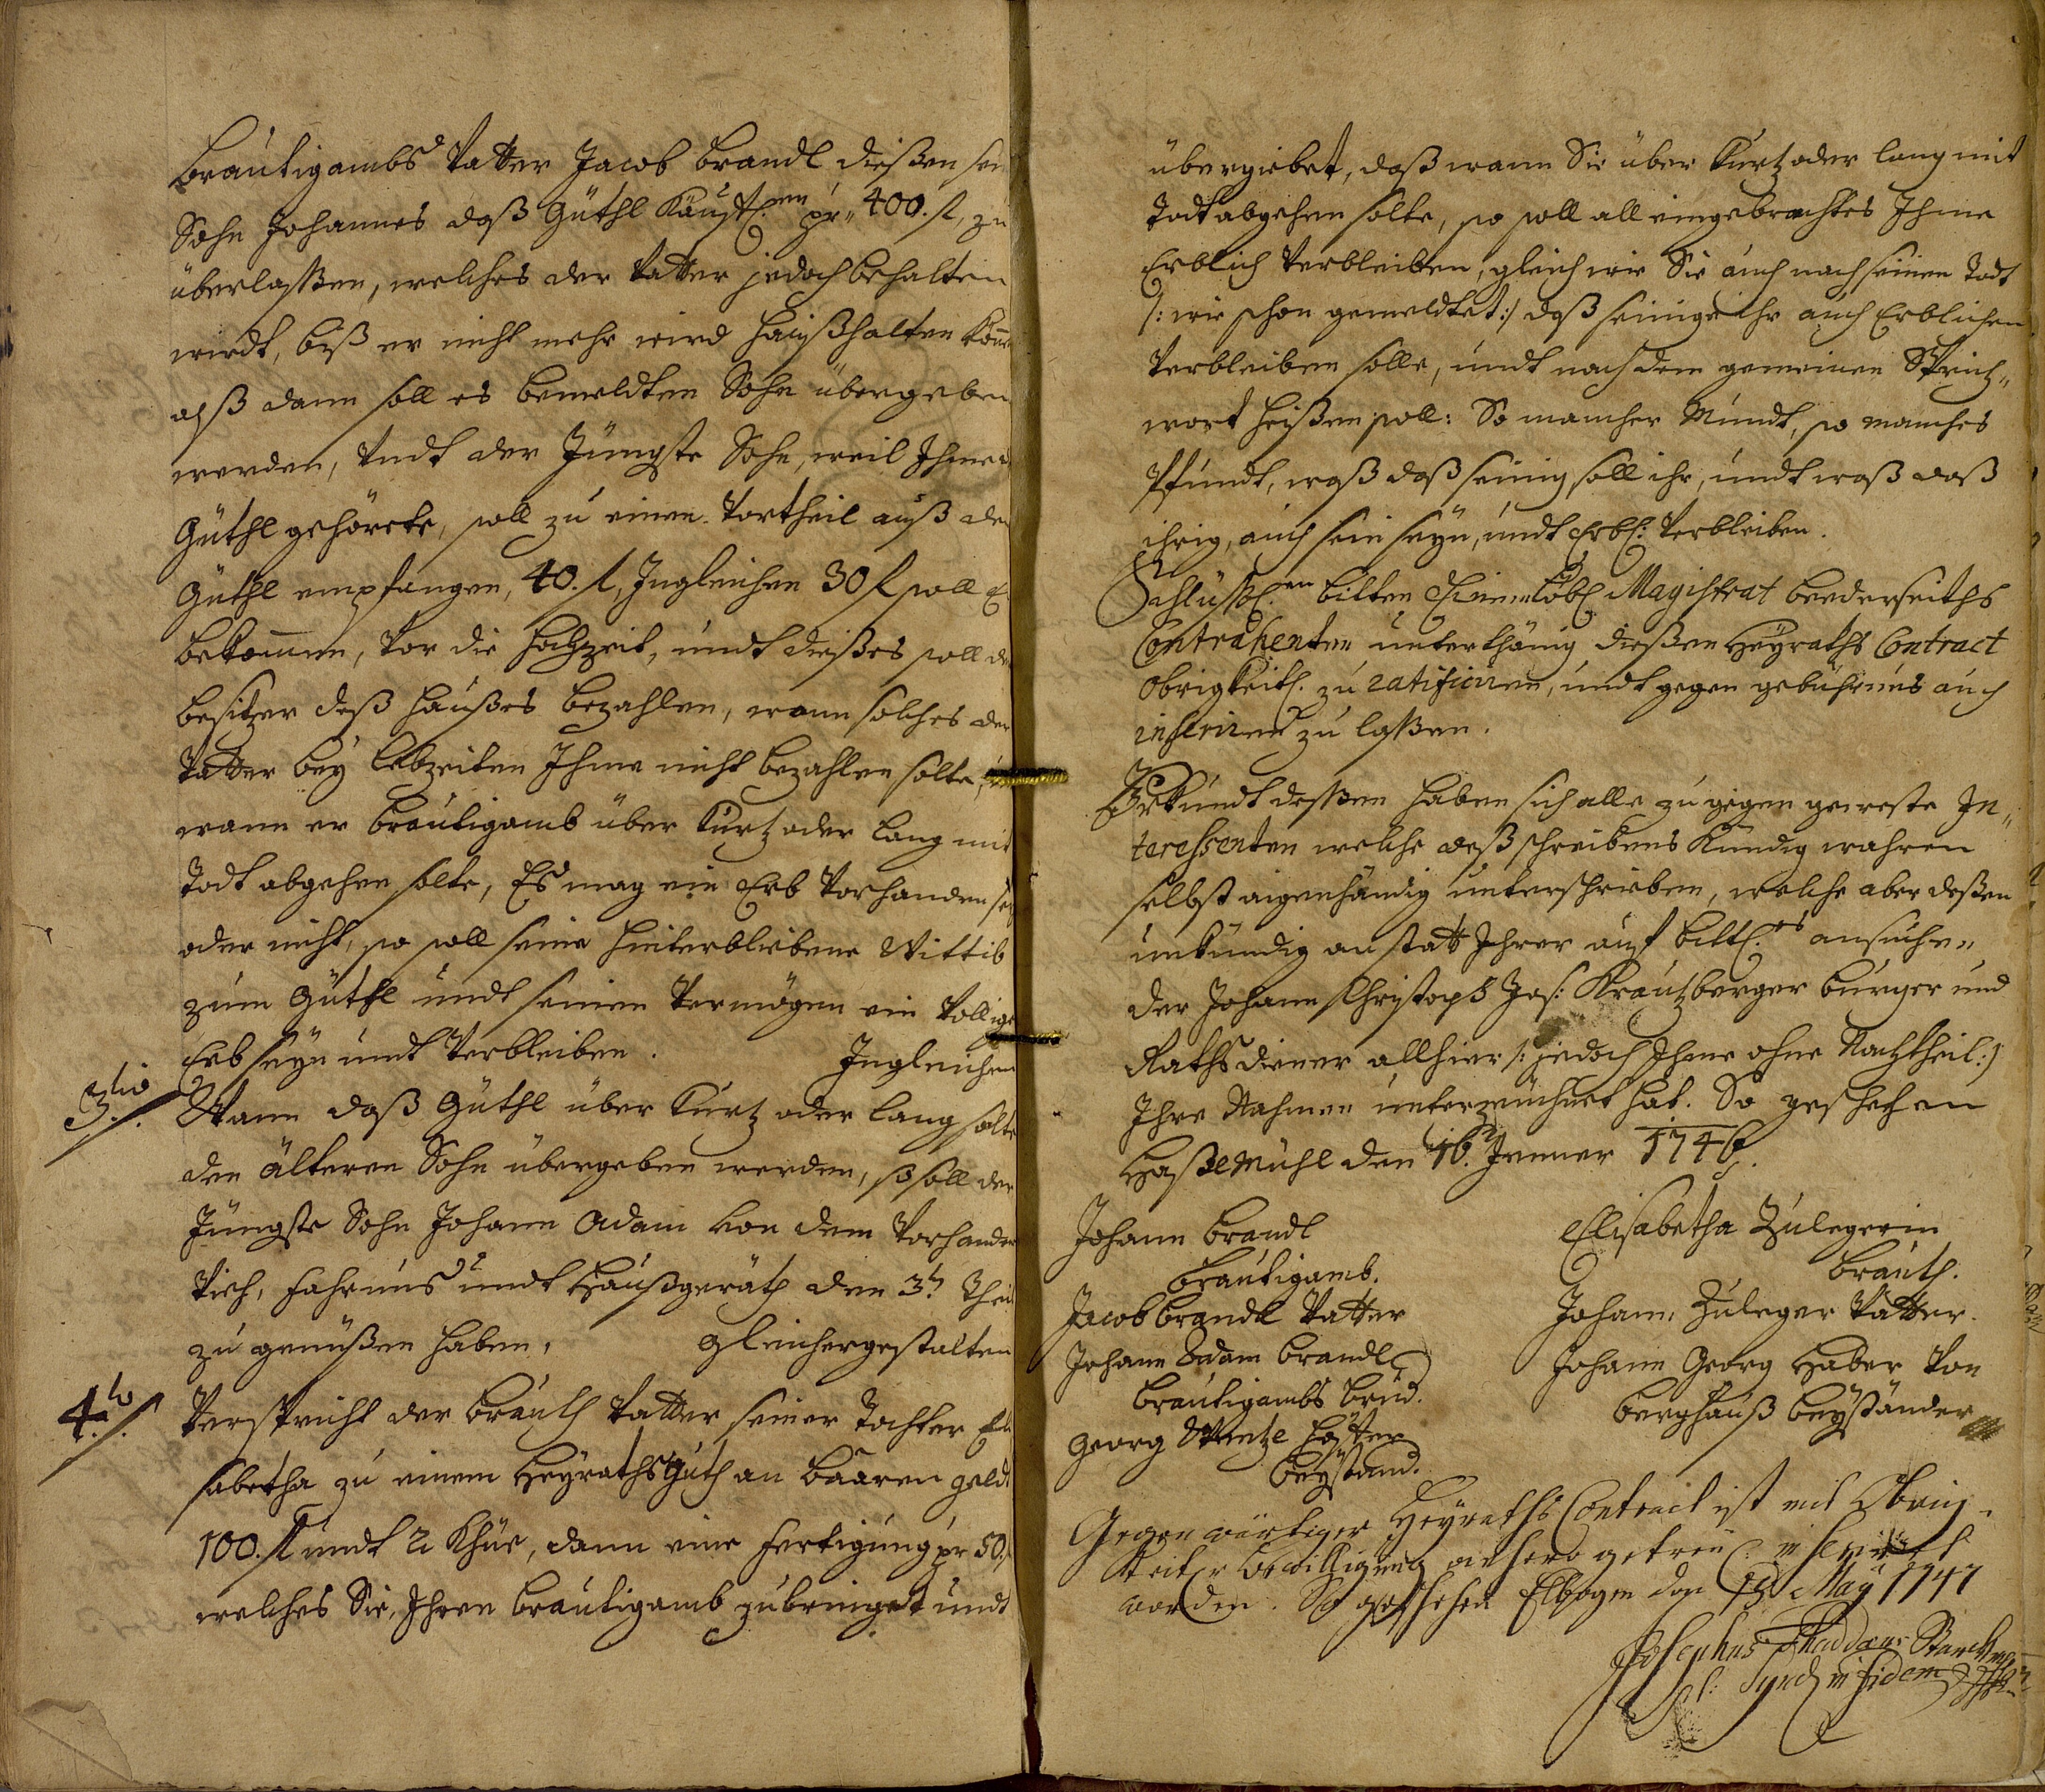 Bräutigambs Vatter Jacob Brandl dießen sein
Sohn Johannes daß Güthl Käuffl:en pr„ 400. fl, zu
überlaßen, welches der Vatter jedoch behalten
wirdt, biß er nicht mehr wird haußhalten könen
alß dann soll es bemeldten Sohn übergeben
werden, Vndt der Jüngste Sohn, weil Ihme d
Güthl gehörete, soll zu einen Vortheil auß den
Güthl empfangen, 40. fl, Ingleichen 30 fl soll Er
bekommen, Vor die Hochzeit, undt dießes soll der
besitzer deß Haußes bezahlen, wann solches der
Vatter bey Lebzeiten Ihme nicht bezahlen solte,
wann er Bräutigamb über kurtz oder lang mit
Todt abgehen solte, Es mag ein Erb Vorhanden sey
oder nicht, so soll seine hinterbliebene Wittib
zum Güthl undt seinen Vermögen ein Völlige
Erb seyn undt Verbleiben. Ingleichen
3tio /. Wann daß Güthl über kurtz oder lang solte
den älteren Sohn übergeben werden, so soll der
Jüngste Sohn Johann Adam von dem Vorhanden
Vieh, fahrnus undt Haußgeräth den 3t. Theil
zu genüßen haben, Gleichergestalten
4to /. Verspricht der Brauth Vatter seiner Tochter Eli
sabetha zu einem Heyrathsguth an baaren geldt
100. fl undt 2 Khüe, dann eine fertigung pr 50.
welches Sie, Ihren Bräutigamb zubringet undt
übergiebet, daß wann Sie über kurtz oder lang mit
Todt abgehen solte, so soll all eingebrachtes Ihme
Erblich Verbleiben, gleich wie Sie auch nach seinen Todt
/: wie schon gemeldtet :/ daß seinige ihr auch Erblichen
Verbleiben solle, undt nach dem gemeinen Sprich„
wort heißen soll: So mancher Mundt, so manches
Pfundt, waß daß seinig, soll ihr, undt waß daß
ihrig, auch sein seyn, undt Erbl: Verbleiben.
Schlüßl:en bitten Einen Löbl Magistrat beederseiths
Contrahenten unterthänig dießen Heyraths Contract
Obrigkeitl. zu ratificiren, undt gegen gebühr uns auch
inseriren zu laßen.
Uhrkundt deßen haben sich alle zu gegen geweste In„
teressenten welche deß schreibens kündig wahren
selbst aigenhändig unterschrieben, welche aber deßen
unkündig an statt Ihrer auf bittl:es ansuchen„
der Johann Christoph Jos: Krautzberger burger und
Rathsdiener allhier /: jedoch Ihme ohne Nachtheil :/
Ihre Nahmen unterzeichnet hat. So geschehen
Haßlmühl den 16. Jenner 1746.
Johann Brandl
Bräutigamb.
Jacob Brandl Vatter
Johann Adam Brandl
Bräutigambs Brud.
Georg
Beystand.
Elisabetha Zulegerin
Brauth.
Johann Zuleger Vatter.
Johann Georg Haber Von
Berghauß Beyständer
Gegenwärtiger Heyraths Contract ist mit Obrig„
keitl:r bewilligung anhero getreü: inseriret
worden. So geschehen Elbogen den 13 May 1747
Josephus Thaddæus
Synd in fidem